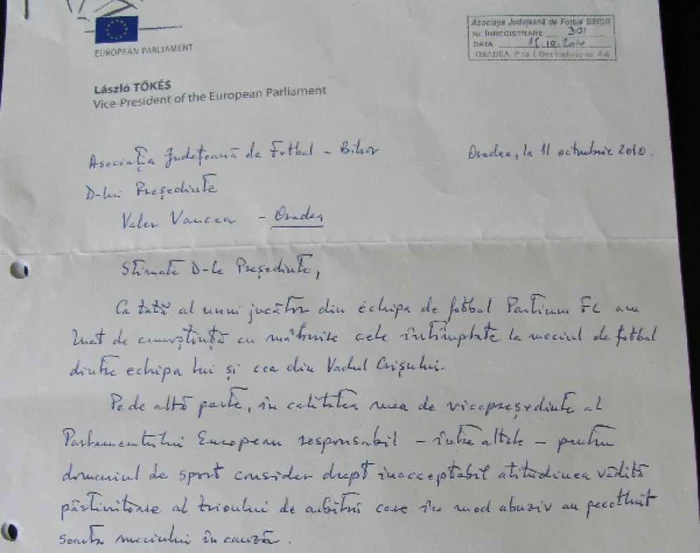 EUROPEAN PARLIAMENT
László TŐKÉS
Vice-President of the European Parliament
Asociaţia Judeţeană de Fotbal BIHOR
Nr. ÎNREGISTRARE 301
DATA 15.10.2010
ORADEA, P-ţa 1 Decembrie nr.
Asociaţia Judeţeană de Fotbal - Bihor
Oradea, la 11 octombrie 2010.
D-lui Preşedinte
Valer Vancea - Oradea
Stimate D-le Preşedinte,
Ca tată al unui jucător din echipa de fotbal Partium FC am
luat de cunoştinţă cu mâhnire cele întîmplate la meciul de fotbal
dintre echipa lui şi cea din Vadul Crişului.
Pe de altă parte, în calitatea mea de vicepreşedinte al
Parlamentului European responsabil - între altele - pentru
domeniul de sport consider drept inacceptabil atitudinea vădită
părtinitoare al trioului de arbitri care în mod abuziv au pecetluit
soarta meciului în cauză.